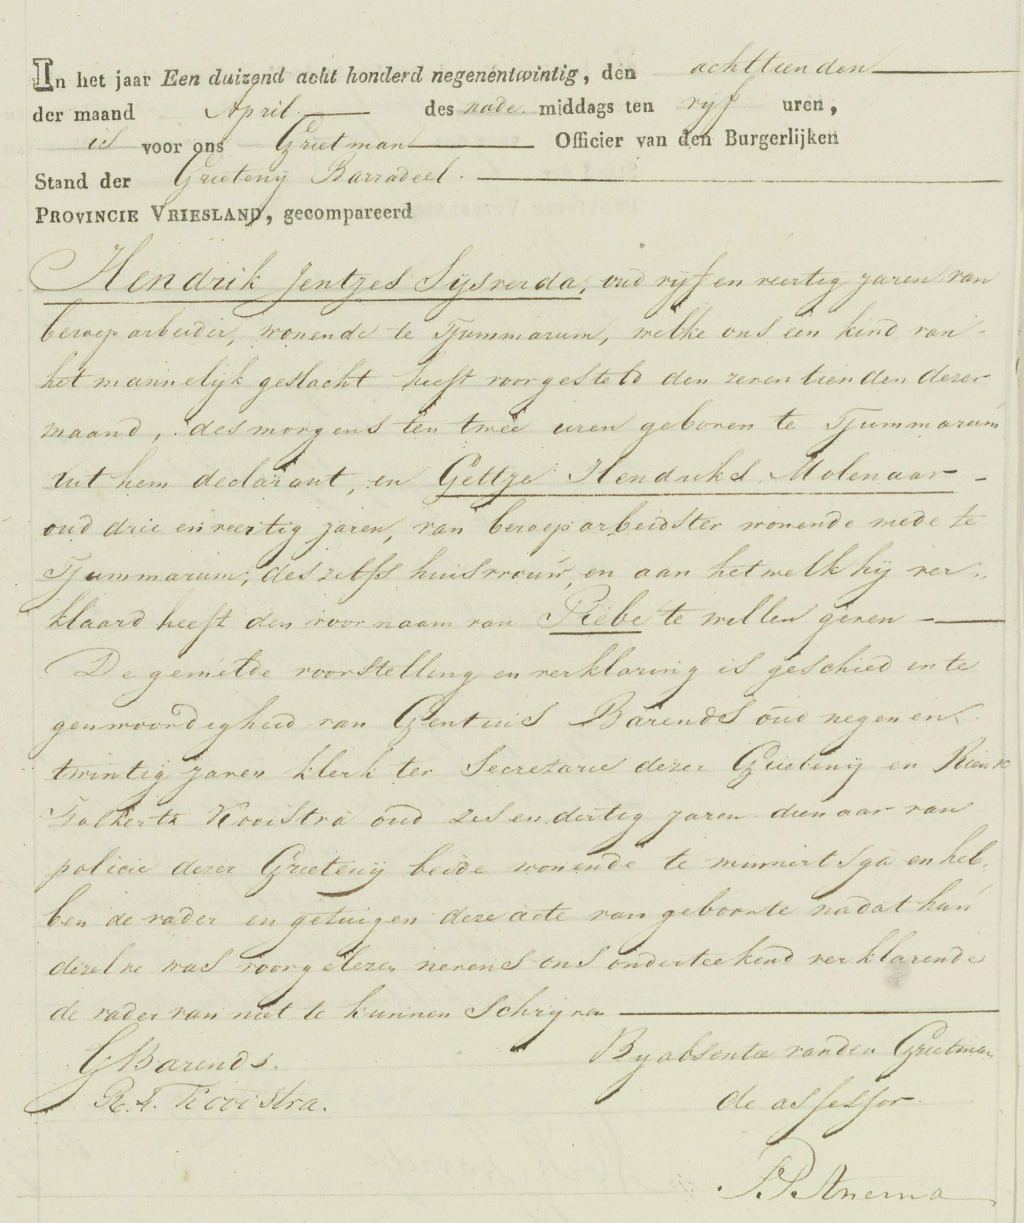 In het jaar Een duizend acht honderd negenentwintig, den achttienden
der maand April des nade middags ten vyf uren,
is voor ons Grietman Officier van den Burgerlijken
Stand der Grieteny Barradeel.
PROVINCIE VRIESLAND, gecompareerd
Hendrik Jentjes Sijsverda, oud vyf en veertig jaren van
beroep arbeider, wonende te Tjummarum, welke ons een kind van
het mannelijk geslacht heeft voorgesteld den zeventienden dezer
maand, des morgens ten twee uren geboren te Tjummarum
uit hem declarant, en Geltje Hendriks Molenaar
oud drie en veertig jaren, van beroep arbeidster wonende mede te
Tjummarum, deszelfs huisvrouw, en aan hetwelk hij ver-
klaard heeft den voornaam van Piebe te willen geven
De gemelde voorstelling en verklaring is geschied in te
genwoordigheid van Gentius Barends oud negen en
twintig jaren klerk ter Secretarie dezer Grieteny en Rienk
Folkerts Kooistra oud zes en dertig jaren dienaar van
policie dezer Grieteny beide wonende te minnertsga en heb-
ben de vader en getuigen deze acte van geboorte nadat hun
dezelve was voorgelezen nevens ons onderteekend verklarende
de vader van niet te kunnen schryven
GBarends. By absentie van den Grietman
R. F. Kooistra. de assessor